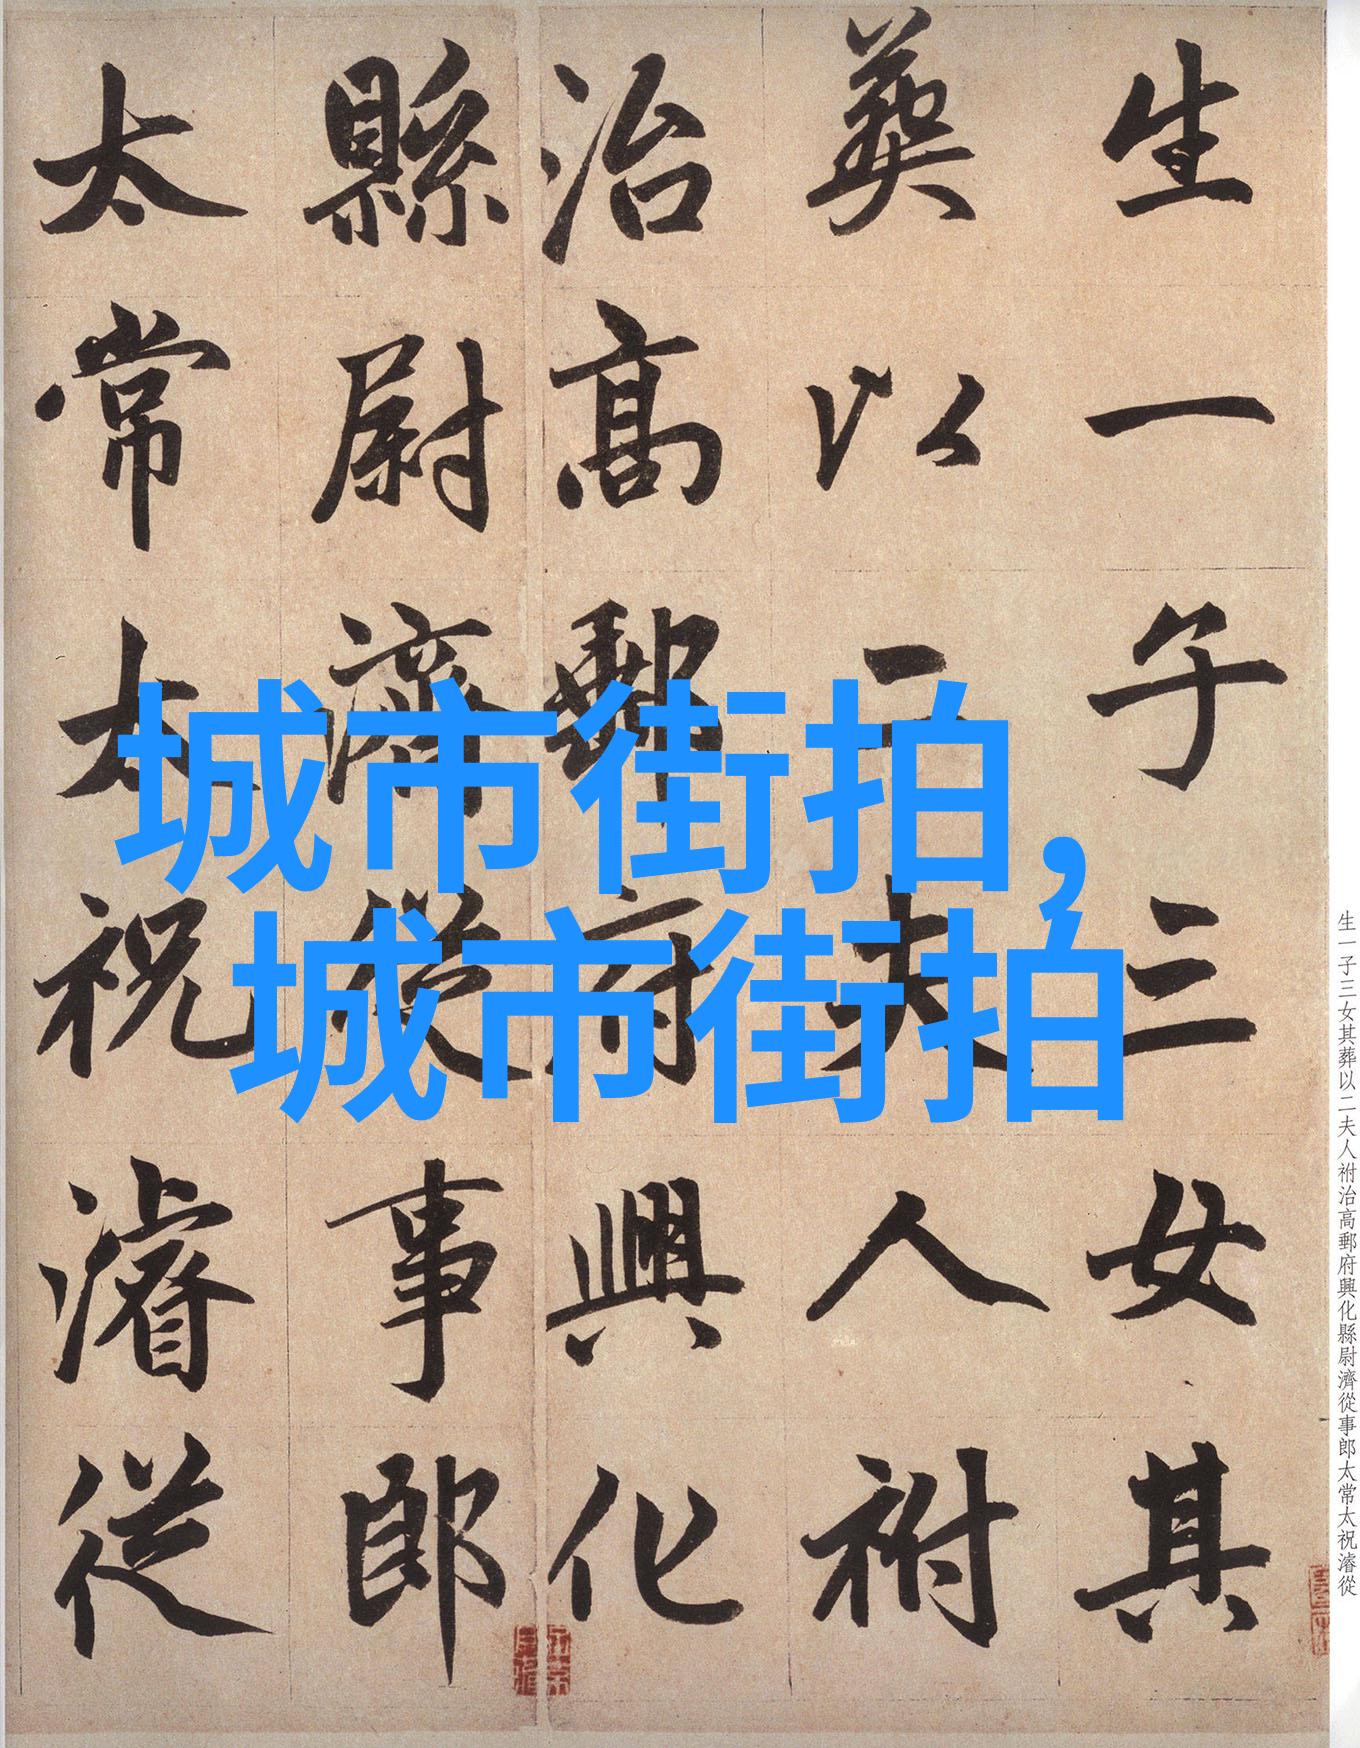 生一子三女其
葬以二夫人祔
治高郵府興化
縣尉濟從事郎
太常太祝濬從
城市街拍,
城市街拍
生一子三女其葬以二夫人祔治高郵府興化縣尉濟從事郎太常太祝濬從